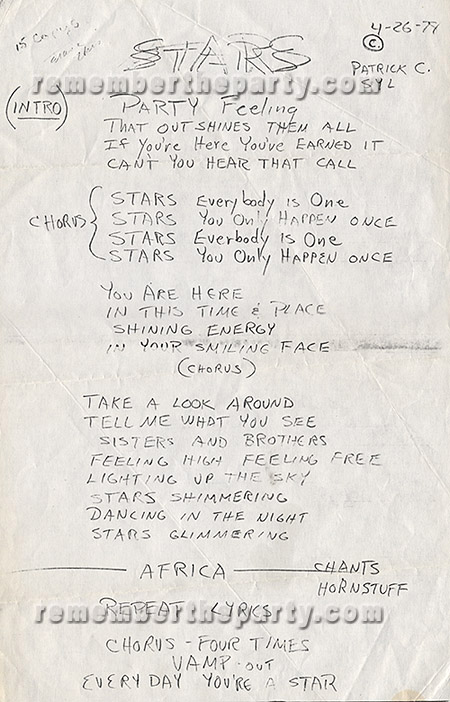 15 Copies
4-26-79
©
STARS
PATRICK C.
SYL
remembertheparty.com
(INTRO)
PARTY Feeling
THAT OUTSHINES THEM ALL
IF You're Here You've EARNED IT
CAN'T YOU HEAR THAT CALL
CHORUS
STARS Everybody is One
STARS You Only HAPPEN ONCE
STARS Everbody is One
STARS You Only HAPPEN ONCE
YOU ARE HERE
IN THIS TIME & PLACE
SHINING ENERGY
IN YOUR SMILING FACE
(CHORUS)
TAKE A LOOK AROUND
TELL ME WHAT YOU SEE
SISTERS AND BROTHERS
FEELING HIGH FEELING FREE
LIGHTING UP THE SKY
STARS SHIMMERING
DANCING IN THE NIGHT
STARS GLIMMERING
AFRICA — CHANTS
HORNSTUFF
REPEAT LYRICS
remembertheparty.com
CHORUS - FOUR TIMES
VAMP - OUT
EVERY DAY YOU'RE A STAR